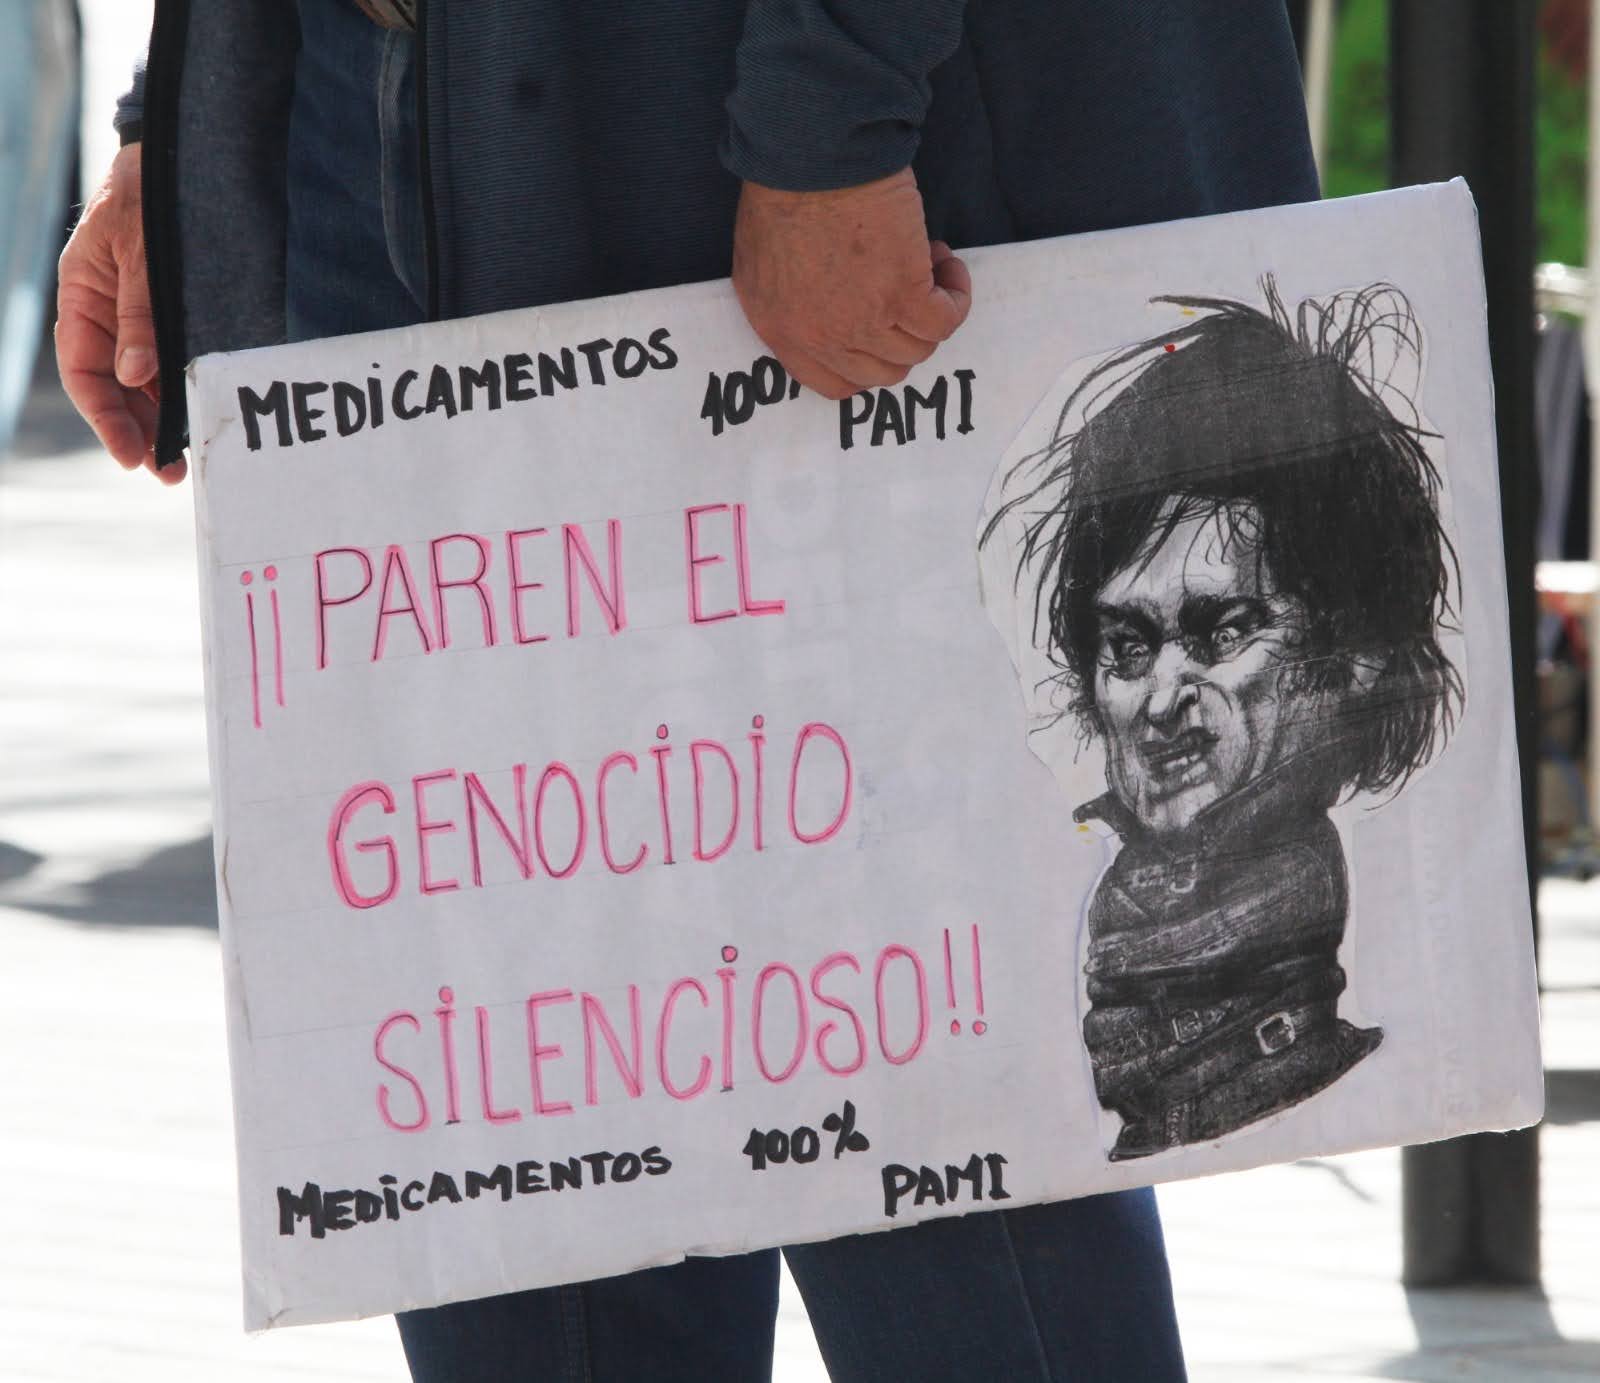 MEDICAMENTOS 100% PAMI
¡¡PAREN EL
GENOCIDIO
SILENCIOSO!!
MEDICAMENTOS 100% PAMI